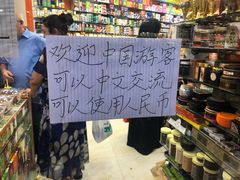 欢迎中国游客
可以中文交流
可以使用人民币